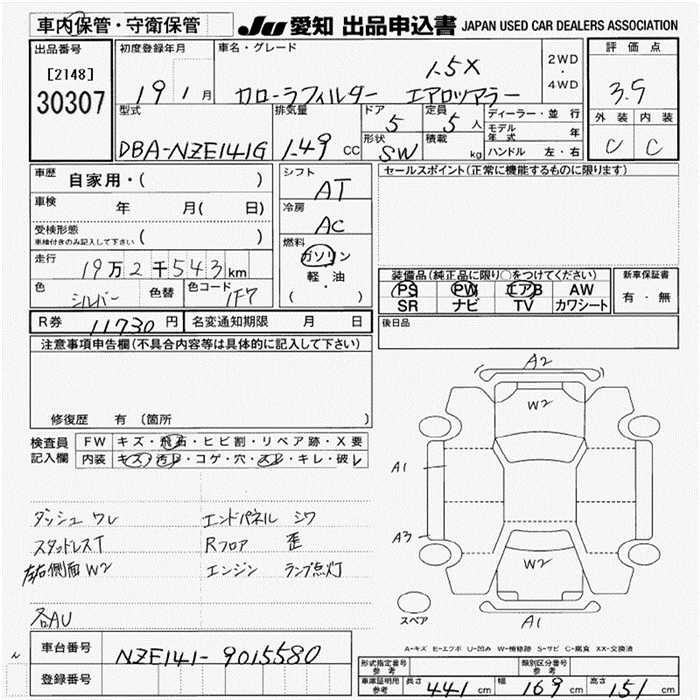 車内保管・守衛保管
JU 愛知 出品申込書 JAPAN USED CAR DEALERS ASSOCIATION
出品番号
[2148]
30307
初度登録年月
19 1月
車名・グレード
1.5X
カローラフィルダー エアロツアラー
2WD
・
4WD
評価点
3.5
外装 内装
C C
型式
DBA-NZE141G
排気量
1.49 cc
ドア
5
形状
SW
定員
5人
積載
kg
ディーラー・並行
モデル年式 年
ハンドル 左・右
車歴
自家用・( )
車検
年 月( 日)
受検形態
車検付きのみ記入して下さい ( )
走行
19万2千543km
色
シルバー
色替
色コード
1F7
シフト
AT
冷房
AC
燃料
ガソリン
軽・油
( ・ )
セールスポイント(正常に機能するものに限ります)
装備品(純正品に限り○をつけてください)
PS PW エアB AW
SR ナビ TV カワシート
新車保証書
有・無
R券 11730円 名変通知期限 月 日
後日品
注意事項申告欄(不具合内容等は具体的に記入して下さい)
修復歴 有(箇所
検査員
記入欄
FW キズ・飛石・ヒビ割・リペア跡・X要
内装 キズ・汚レ・コゲ・穴・スレ・キレ・破レ
ダッシュ ワレ
スタッドレスT
左右側面 W2
各AU
エンドパネル シワ
Rフロア 歪
エンジン ランプ点灯
A2
W2
A1
A3
W2
A1
スペア
A-キズ E-エクボ U-凹み W-補修跡 S-サビ C-腐食 XX-交換済
車台番号
NZE141-9015580
登録番号
形式指定番号
参考
類別区分番号
参考
車庫証明用
参考
長さ 441cm 幅 169cm 高さ 151cm